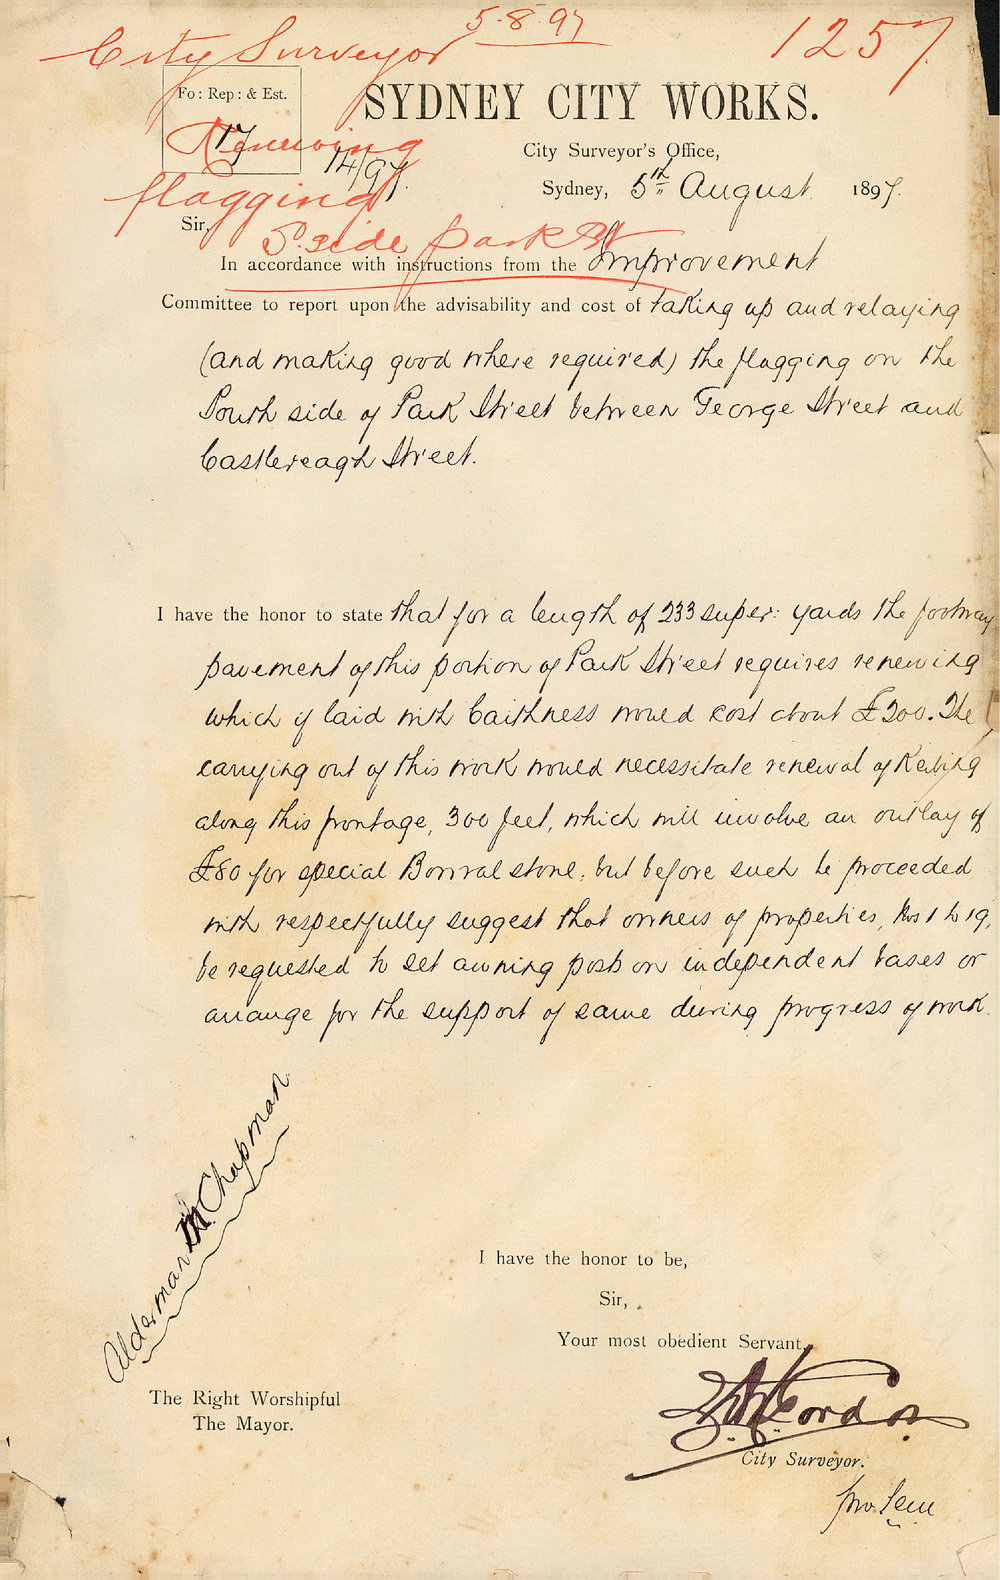 5.8.97
City Surveyor
1257
Fo: Rep: & Est.
17
14/97.
Renewing
flagging
S. side Park St
SYDNEY CITY WORKS.
City Surveyor's Office,
Sydney, 5th August 1897.
Sir,
In accordance with instructions from the Improvement
Committee to report upon the advisability and cost of taking up and relaying
(and making good where required) the flagging on the
South side of Park Street between George Street and
Castlereagh Street.
I have the honor to state that for a length of 233 super: yards the footway
pavement of this portion of Park Street requires renewing
which if laid with Caithness would cost about £200. The
carrying out of this work would necessitate renewal of Kerbing
along this frontage, 300 feet, which will involve an outlay of
£80 for special Bowral stone, but before such be proceeded
with respectfully suggest that owners of properties, Nos 1 to 19,
be requested to set awning posts on independent bases or
arrange for the support of same during progress of work.
Alderman Chapman
I have the honor to be,
Sir,
Your most obedient Servant,
Gordon
City Surveyor.
The Right Worshipful
The Mayor.